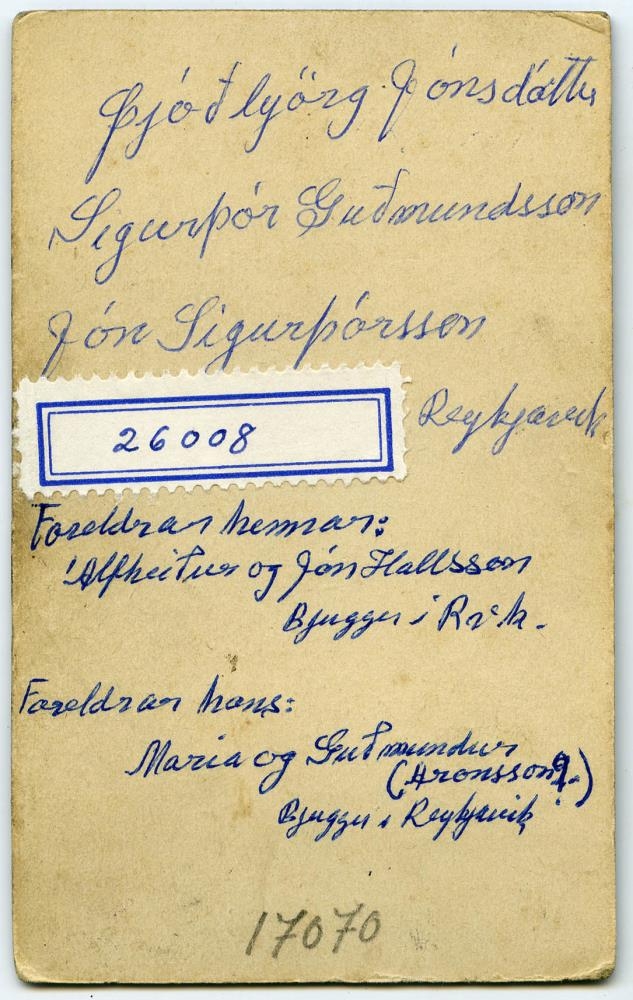 Þjóðbjörg Jónsdóttir
Sigurþór Guðmundsson
Jón Sigurþórsson
Reykjavík
26008
Foreldrar hennar:
Álfheiður og Jón Hallsson
Bjuggu í Rvk.
Foreldrar hans:
Maria og Guðmundur
(Aronsson?)
Bjuggu í Reykjavik
17070